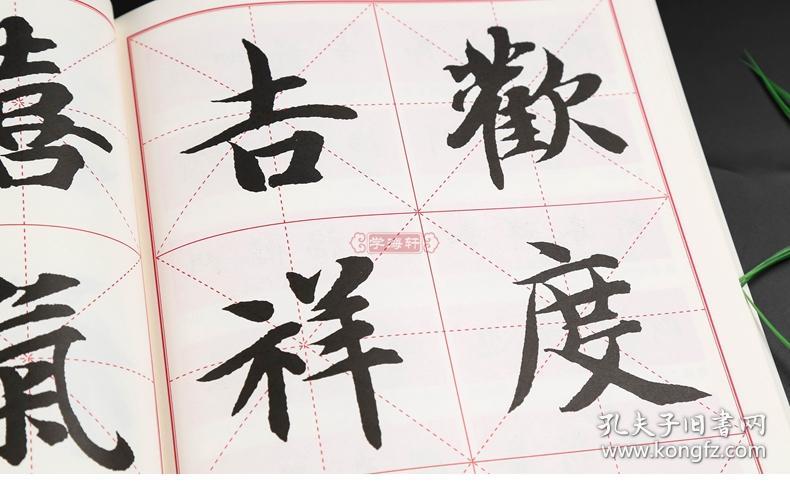 歡度
吉祥
喜氣
学海轩
孔夫子旧书网
www.kongfz.com